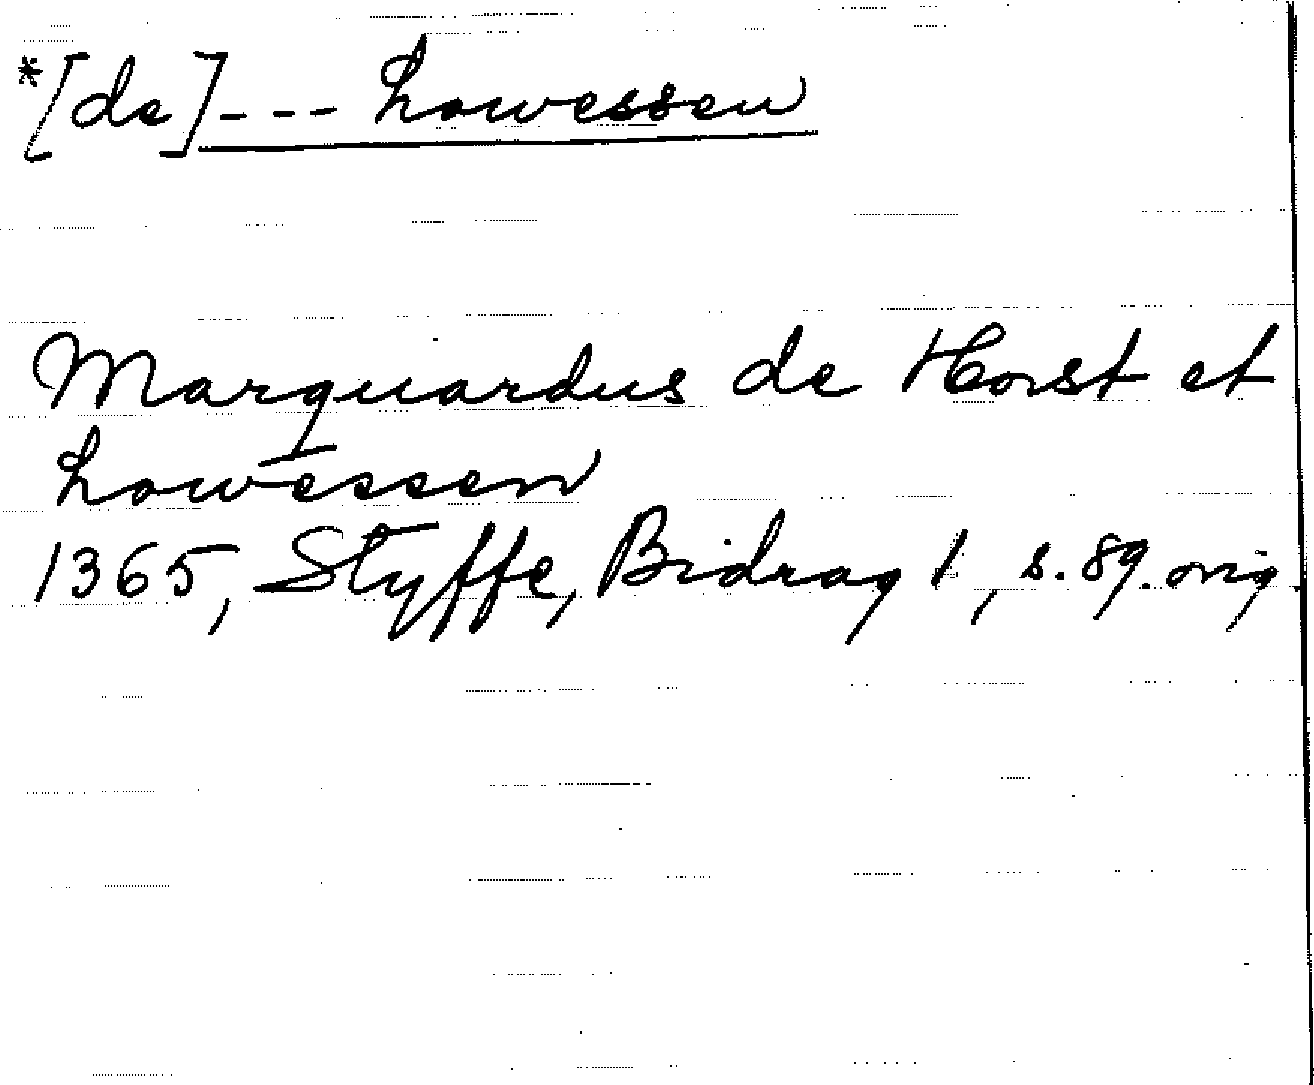 *[de]--- howessen
Marquardus de Horst et
howessen
1365, Styffe, Bidrag 1, s. 89. orig.